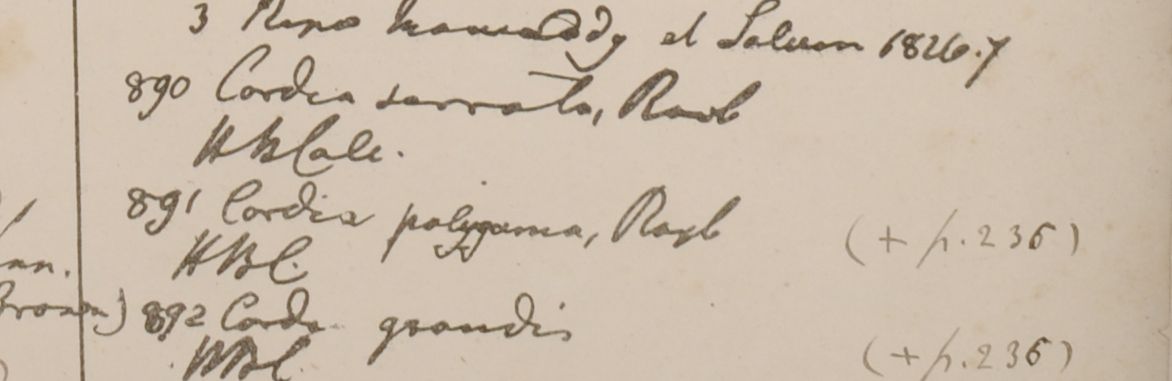 3 Ripa et Saluen 1826.7
890 Cordia serrata, Roxb
HBCalc.
891 Cordia polygama, Roxb (+ p. 236)
an.
HBC.
892 Cord. grandis
HBC. (+ p. 236)